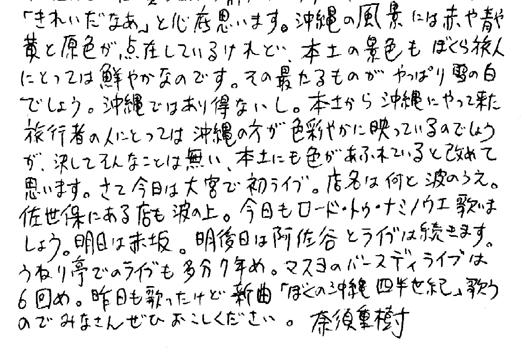 「きれいだなぁ」と心底思います。沖縄の風景には赤や青や
黄と原色が点在しているけれど 本土の景色も ぼくら旅人
にとっては鮮やかなのです。その最たるものが やっぱり雪の白
でしょう。沖縄ではあり得ないし。本土から沖縄にやって来た
旅行者の人にとっては 沖縄の方が色彩やかに映っているのでしょう
が、決してそんなことは無い、本土にも色があふれていると改めて
思います。さて今日は大宮で初ライブ。店名は何と波のうえ。
佐世保にある店も波の上。今日もロード・トゥ・ナミノウエ歌いま
しょう。明日は赤坂。明後日は阿佐谷とライブは続きます。
うねり亭でのライブも多分7年め。マスヨのバースディライブは
6回め。昨日も歌ったけど新曲「ぼくの沖縄 四半世紀」歌う
のでみなさんぜひおこしください。 奈須重樹